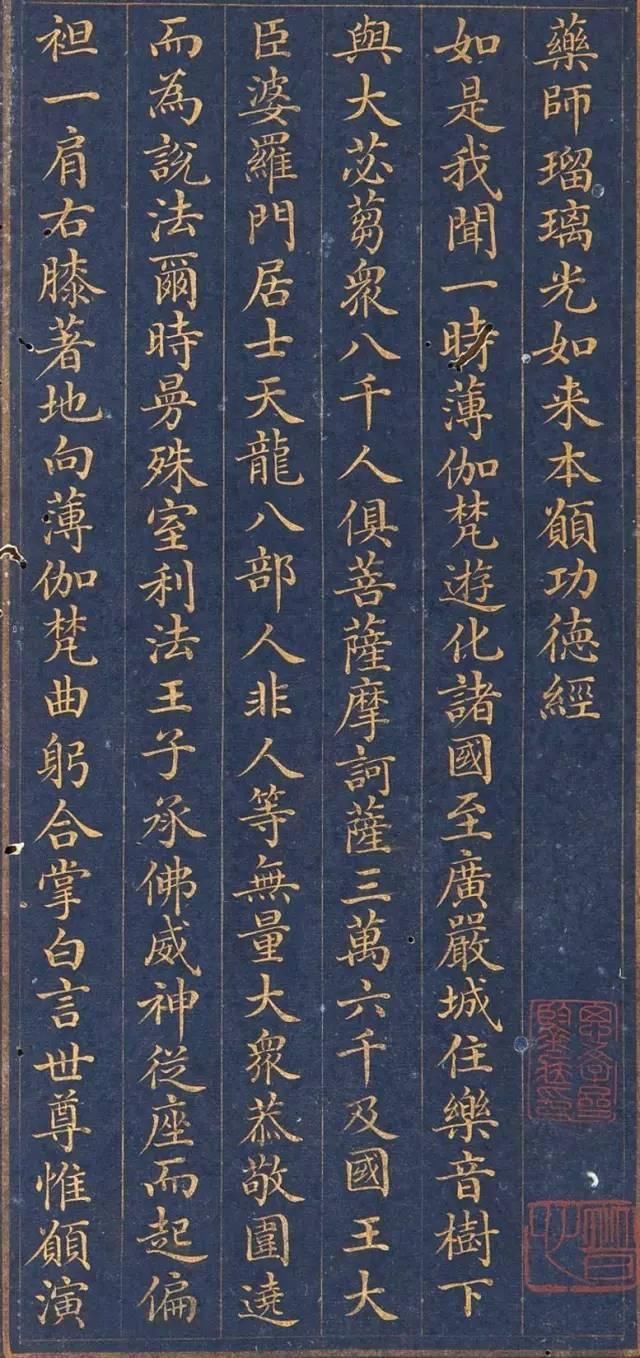 藥師瑠璃光如来本願功徳經
如是我聞一時薄伽梵遊化諸國至廣嚴城住樂音樹下
與大苾芻衆八千人俱菩薩摩訶薩三萬六千及國王大
臣婆羅門居士天龍八部人非人等無量大衆恭敬圍遶
而為說法爾時曼殊室利法王子承佛威神從座而起偏
袒一肩右膝著地向薄伽梵曲躬合掌白言世尊惟願演